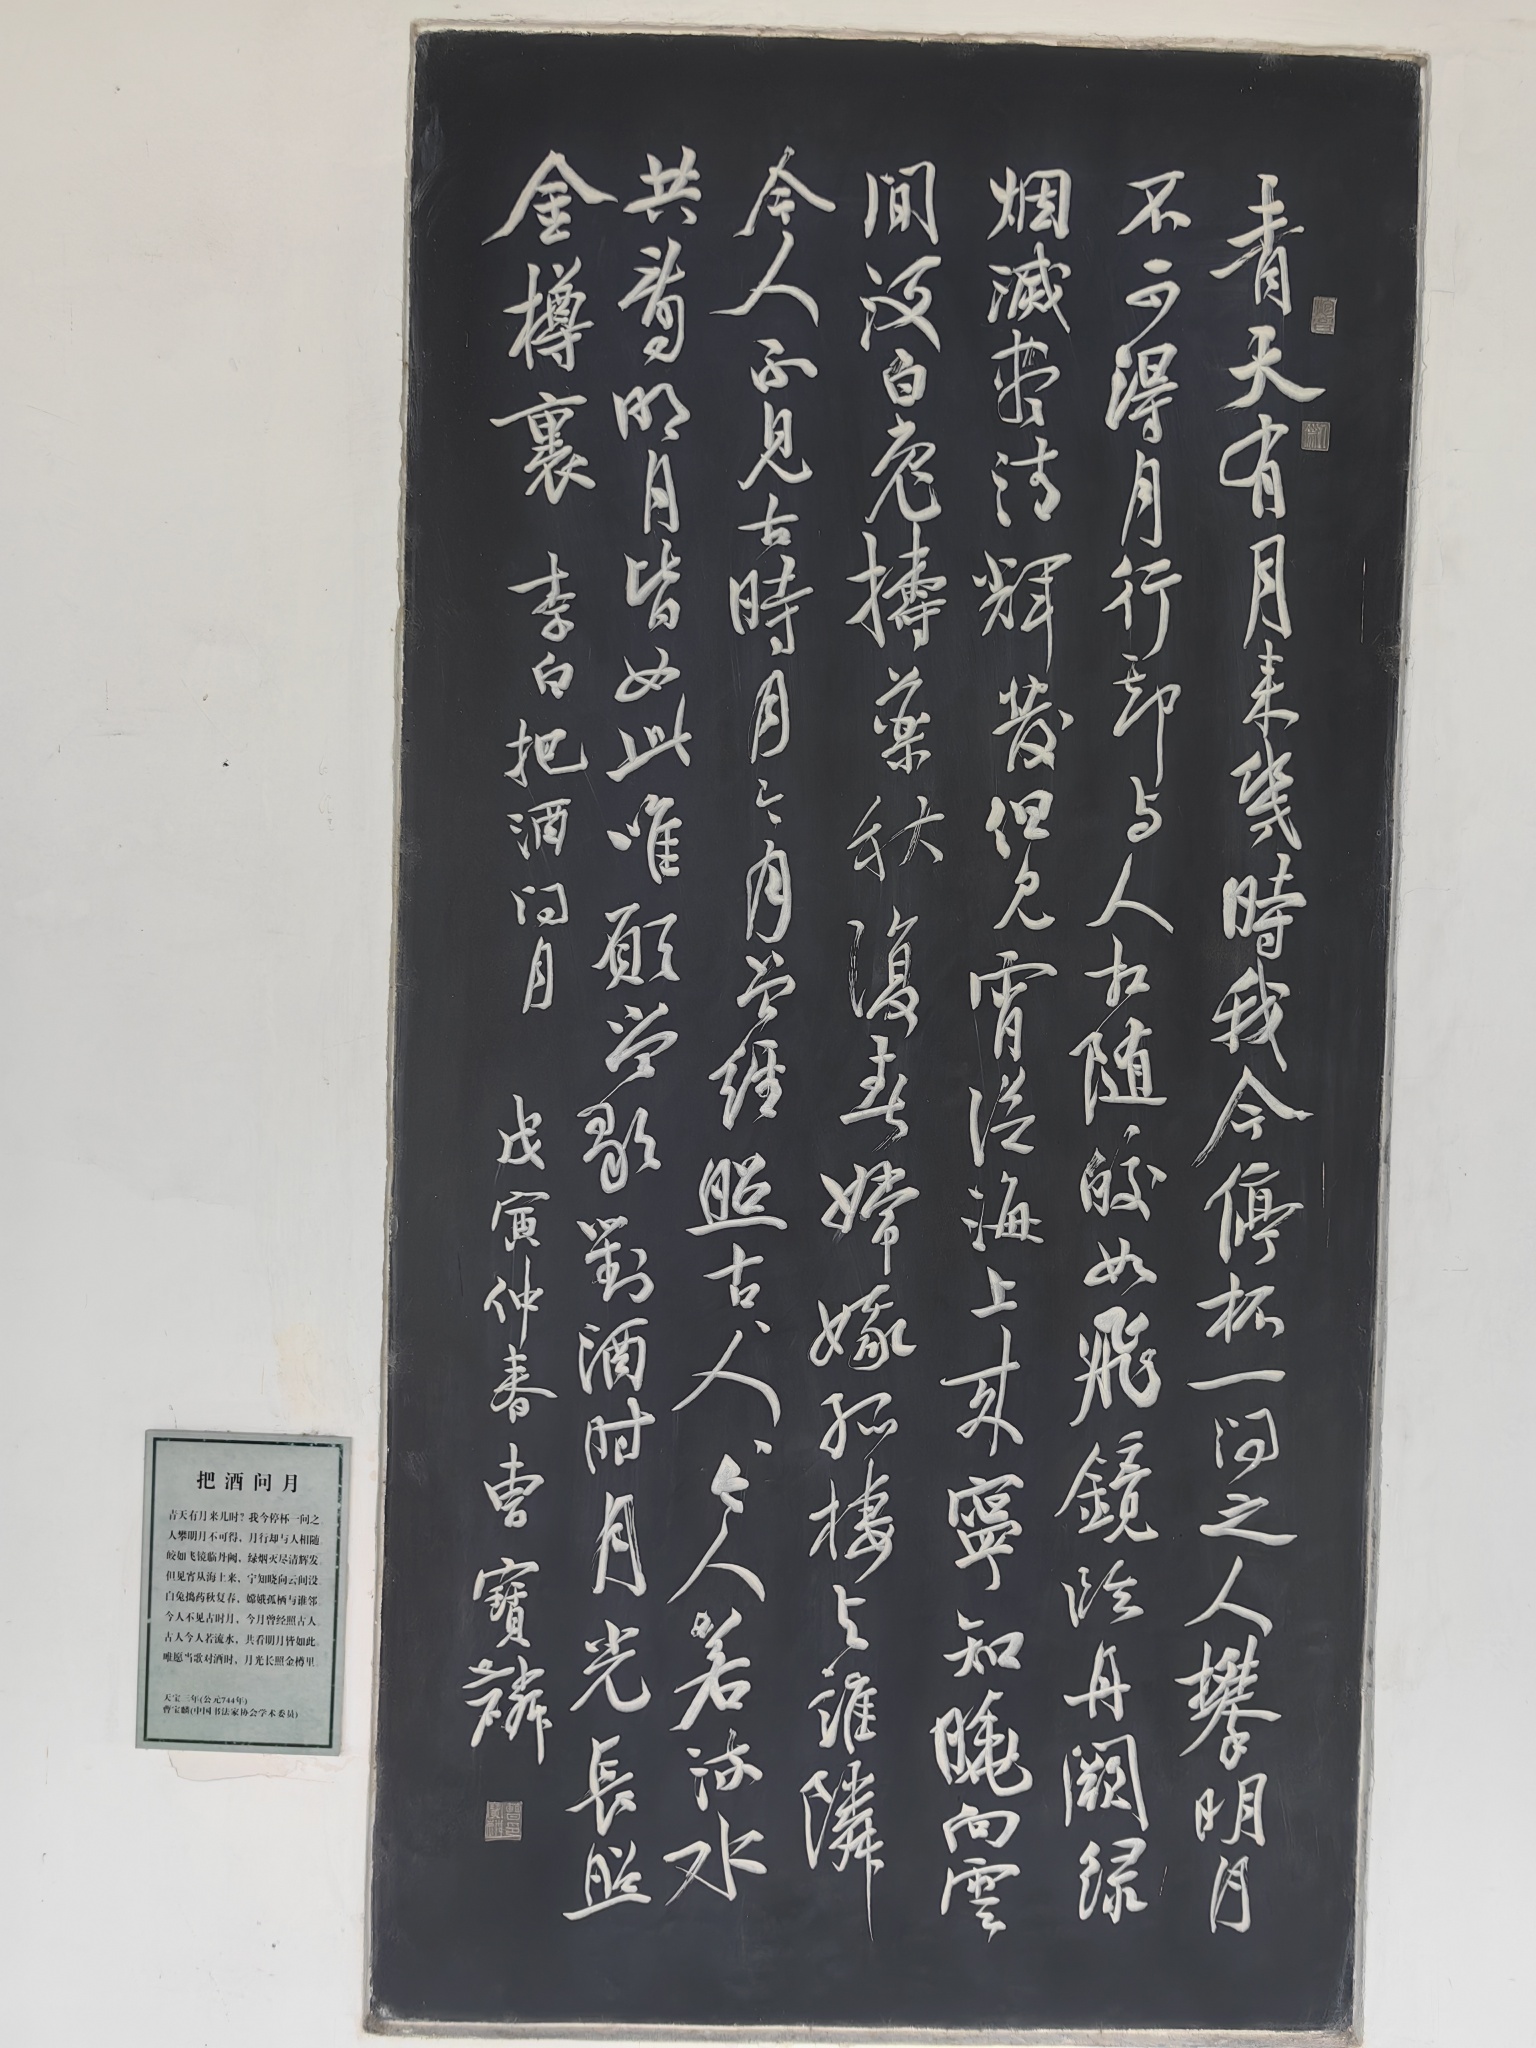 青天有月来幾時我今停杯一问之人攀明月
不可得月行却与人相随皎如飛鏡臨丹闕绿
烟滅尽清輝發但见宵従海上来寧知曉向雲
间没白兔擣藥秋復春嫦娥孤棲与誰隣
今人不見古時月今月曾經照古人古人今人若流水
共看明月皆如此唯願當歌對酒时月光長照
金樽裏 李白把酒问月 戊寅仲春曹寶麟
把酒问月
青天有月来几时？我今停杯一问之
人攀明月不可得，月行却与人相随
皎如飞镜临丹阙，绿烟灭尽清辉发
但见宵从海上来，宁知晓向云间没
白兔捣药秋复春，嫦娥孤栖与谁邻
今人不见古时月，今月曾经照古人
古人今人若流水，共看明月皆如此
唯愿当歌对酒时，月光长照金樽里
天宝三年(公元744年)
曹宝麟(中国书法家协会学术委员)